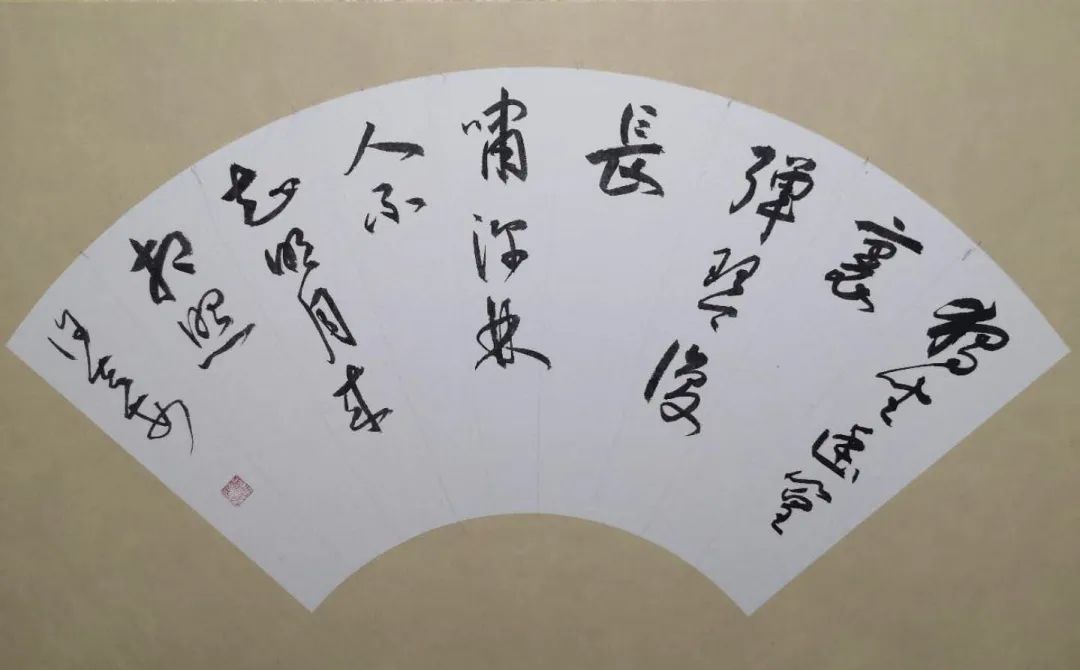 獨坐幽篁
裏
彈琴復
長
嘯深林
人不
知明月来
相照